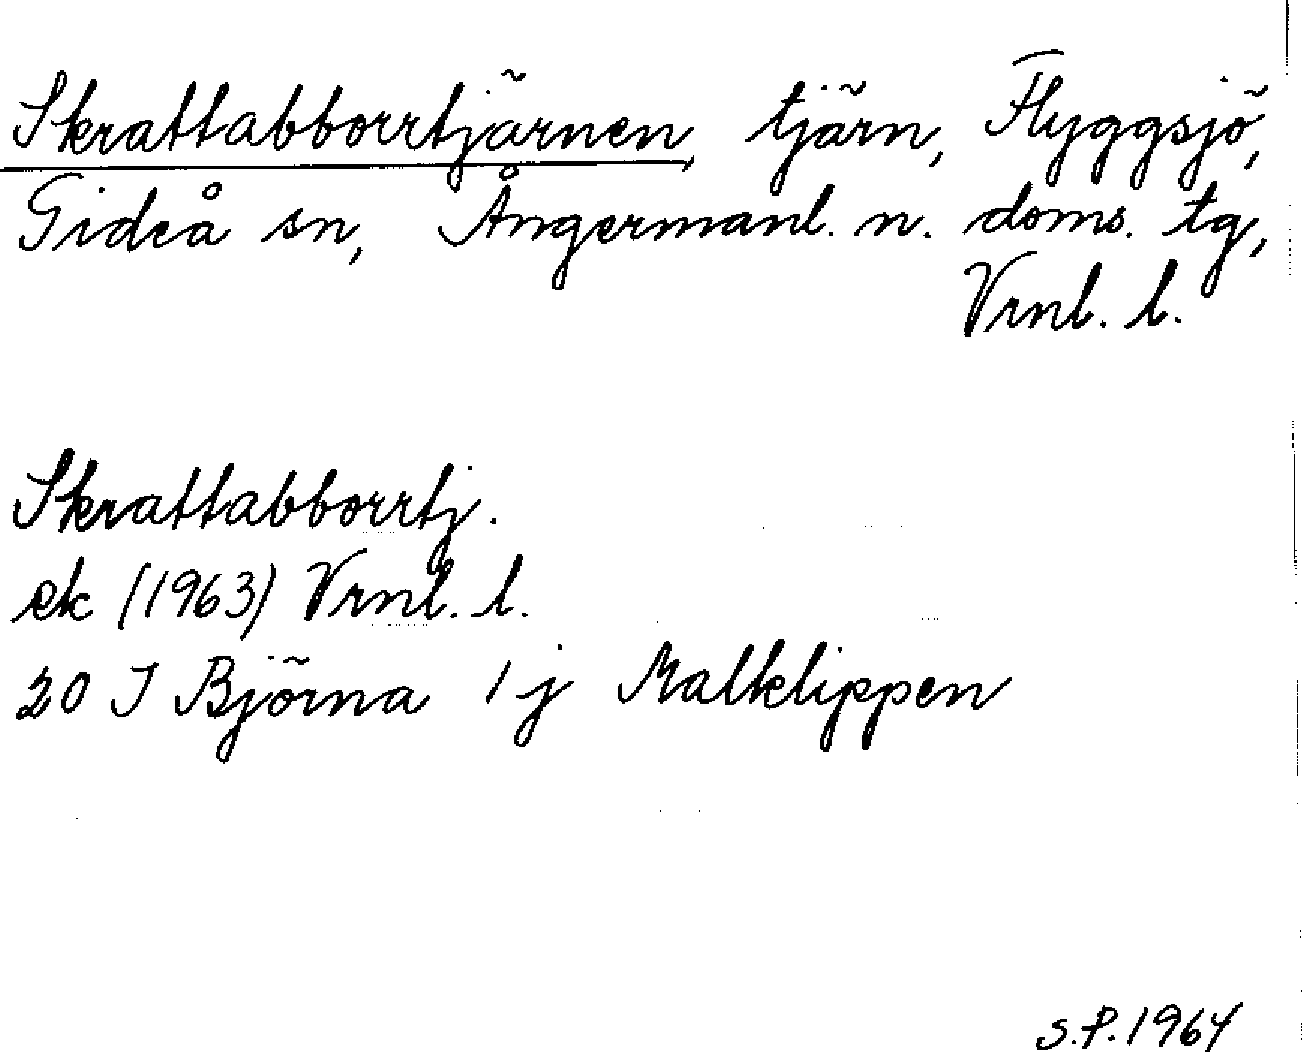 Skrattabborrtjärnen, tjärn, Flyggsjö,
Gideå sn, Ångermanl. n. doms. tg,
Vrnl. l.
Skrattabborrtj.
ek (1963) Vrnl. l.
20 I Björna 1 j Malklippen
S.P. 1964